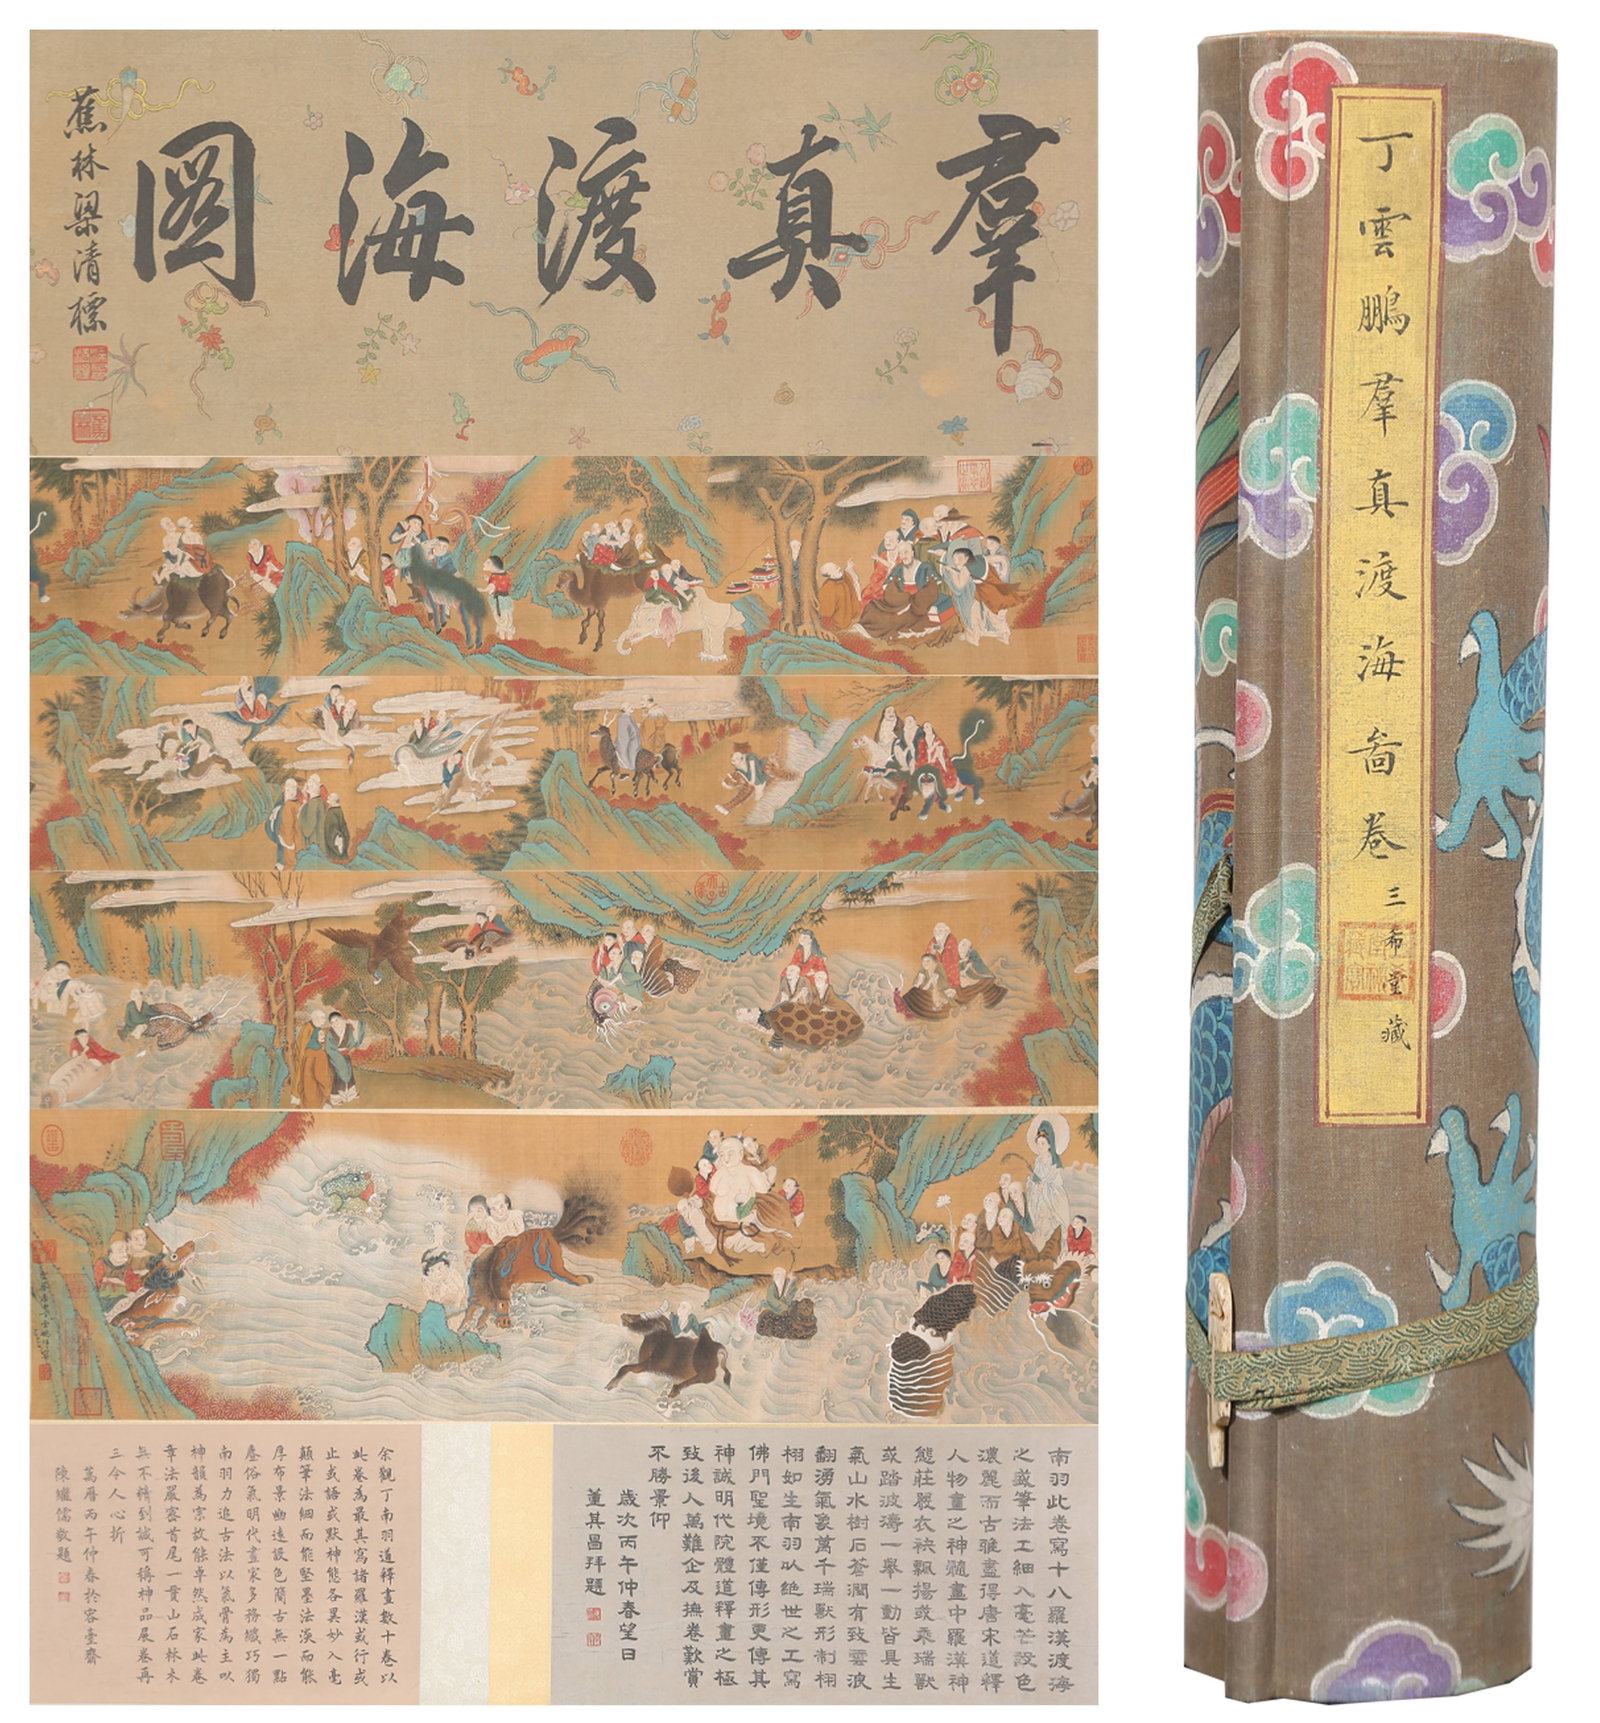 羣真渡海圖
蕉林梁清標
南羽此卷寫十八羅漢渡海
之盛筆法工細入毫芒設色
濃麗而古雅盡得唐宋道釋
人物畫之神髓畫中羅漢神
態莊嚴衣袂飄揚或乘瑞獸
或踏波濤一舉一動皆具生
氣山水樹石蒼潤有致雲浪
翻湧氣象萬千瑞獸形制栩
栩如生南羽以絕世之工寫
佛門聖境不僅傳形更傳其
神誠明代院體道釋畫之極
致後人萬難企及撫卷歎賞
不勝景仰
歲次丙午仲春望日
董其昌拜題
余觀丁南羽道釋畫數十卷以
此卷為最其寫諸羅漢或行或
止或語或默神態各異妙入毫
顛筆法細而能堅墨法淡而能
厚布景幽遠設色簡古無一點
塵俗氣明代畫家多務纖巧獨
南羽力追古法以氣骨為主以
神韻為宗故能卓然成家此卷
章法嚴密首尾一貫山石林木
無不精到誠可稱神品展卷再
三令人心折
萬曆丙午仲春於容臺齋
陳繼儒敬題
丁雲鵬羣真渡海啚卷
三希堂藏